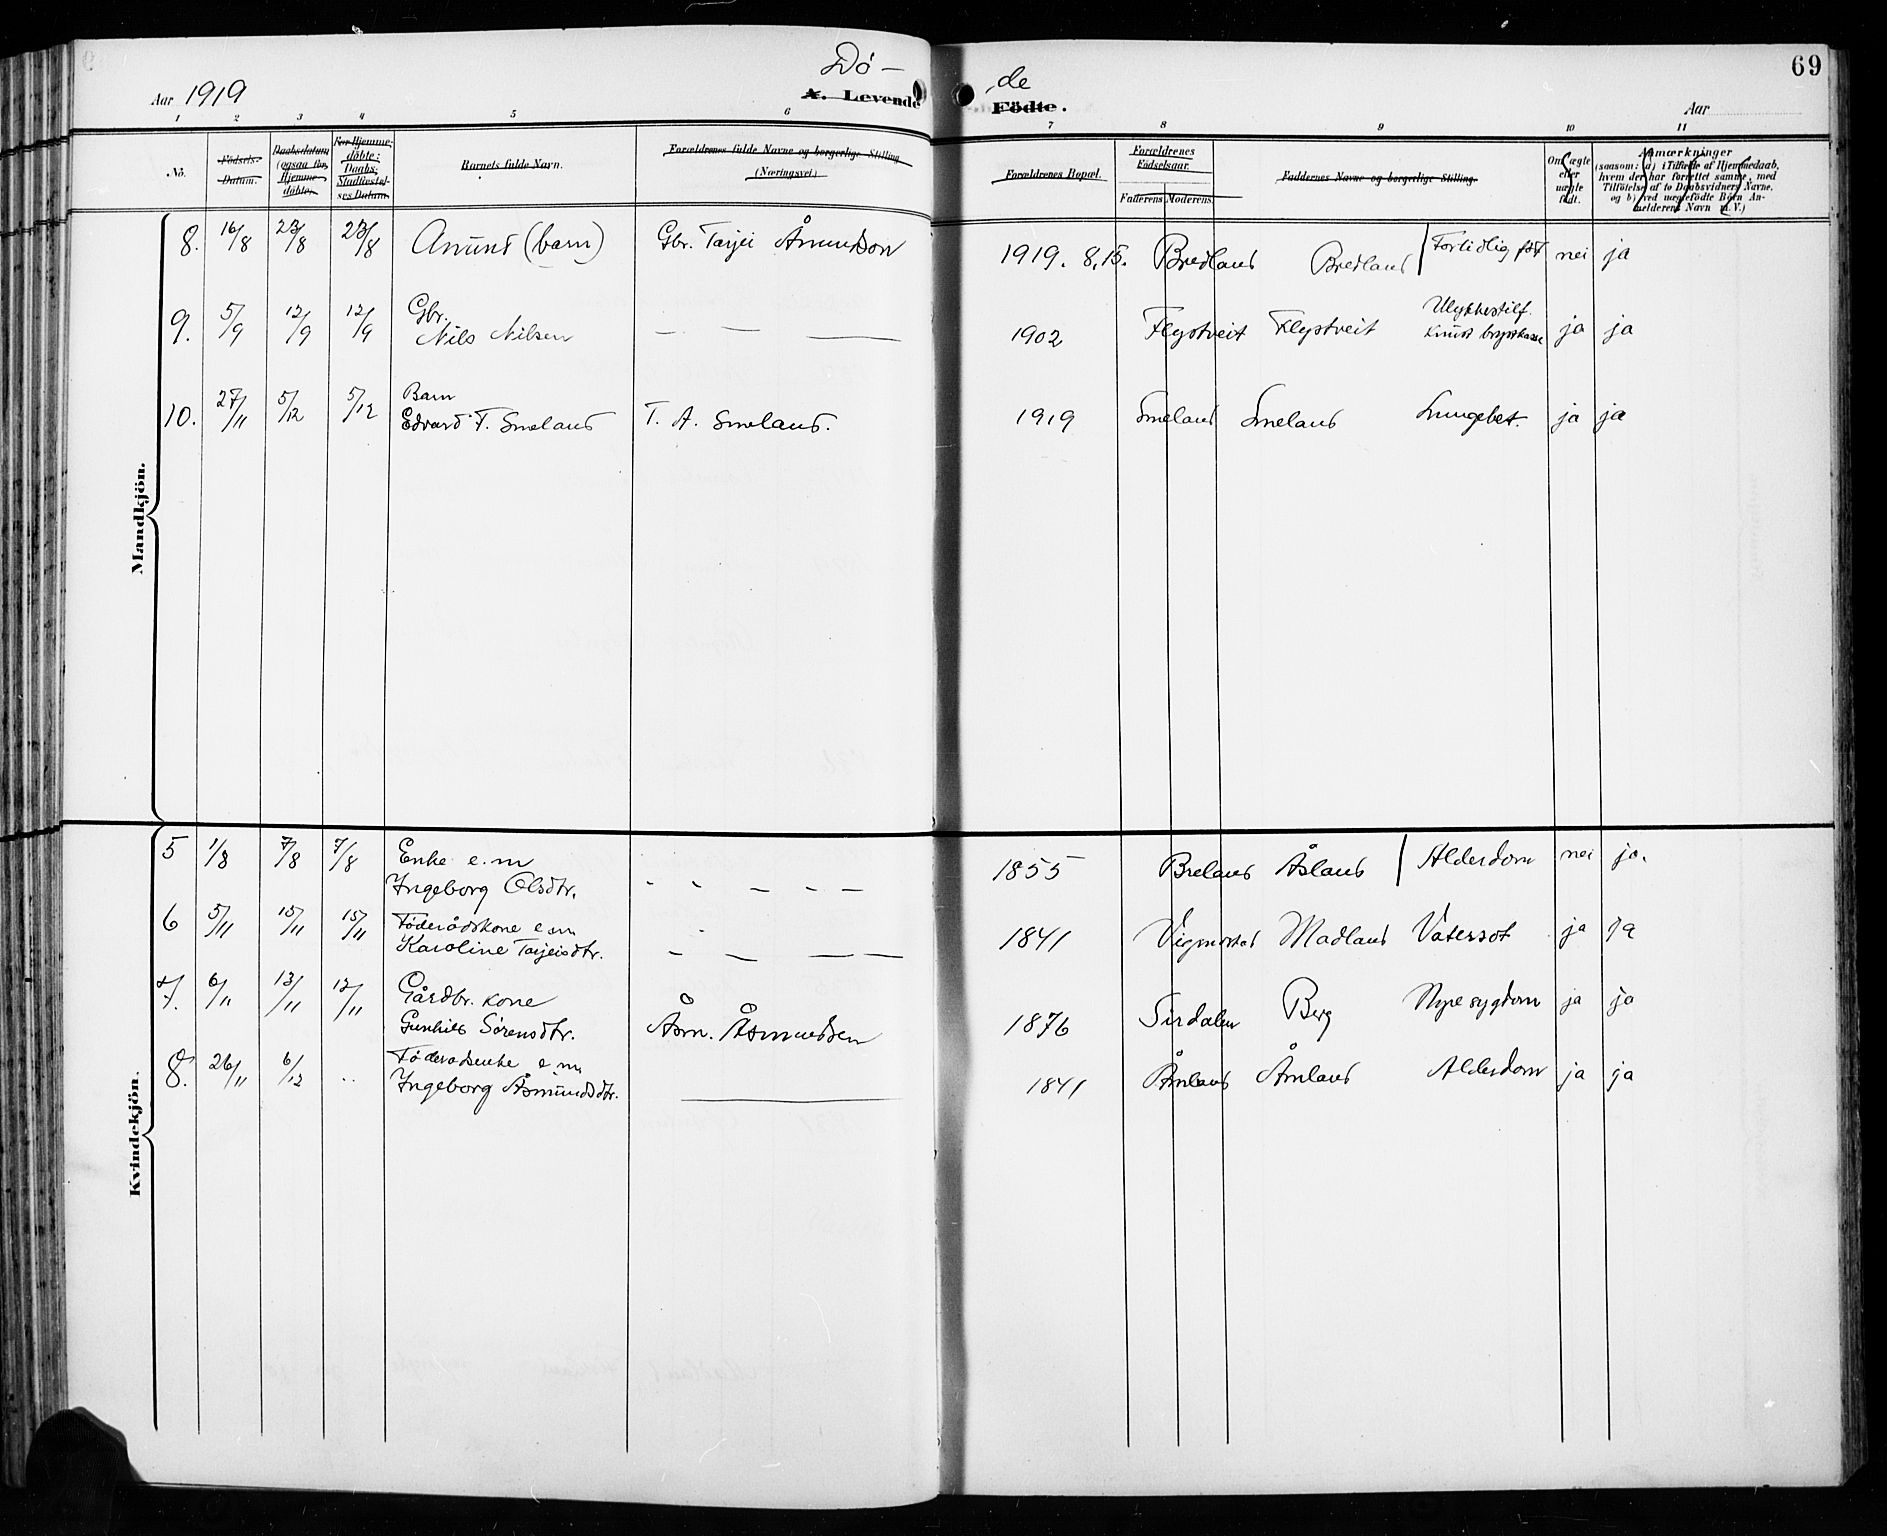 69
Dö- de
Aar 1919 A. Levende Födte. Aar
1 2 3 4 5 6 7 8 9 10 11
No. Födsels-Datum. Daabsdatum (ogsaa for Hjemmedöbte). For Hjemmedöbte: Daabs-Stadfæstelses Datum. Barnets fulde Navn. Forældrenes fulde Navne og borgerlige Stilling (Næringsvei) Forældrenes Bopæl. Forældrenes Födselsaar. Faderens Moderens Faddernes Navne og borgerlige Stilling. Om ægte eller uægte födt. Anmærkninger (saasom: a) i Tilfælde af Hjemmedaab, hvem der har forrettet samme, med Tilföielse af to Daabsvidners Navne, og b) ved uægtefödte Börn Anmelderens Navn m. V.)
Mandkjön.
8. 16/8 23/8 23/8 Anund (barn) Gbr. Tarjei Ånundson 1919. 8,15. Bredland Bredland Fortidlig født nei ja
9. 5/9 12/9 12/9 Gbr. Nils Nilsen — — — 1902 Flystveit Flystveit Ulykkestilf. Knust brystkasse ja ja
10. 27/11 5/12 5/12 Barn Edvard T. Smeland T. A. Smeland. 1919 Smeland Smeland Lungebet. ja ja
Kvindekjön.
5 1/8 7/8 7/8 Enke e.m Ingeborg Olsdtr. - - — — — 1855 Breland Åsland Alderdom nei ja.
6 5/11 15/11 15/11 Føderådskone e.m Karoline Tarjeisdtr. — — — — 1841 Vigmostad Madland Vatersot ja ja
7. 6/11 13/11 12/11 Gårdbr. kone Gunhild Sørensdtr. Åsm. Åsmundsen 1876 Sirdalen Berg Nyresygdom ja ja
8. 26/11 6/12 .. Føderadsenke e.m Ingeborg Åsmundsdtr. — 1841 Åmland Åmland Alderdom ja ja